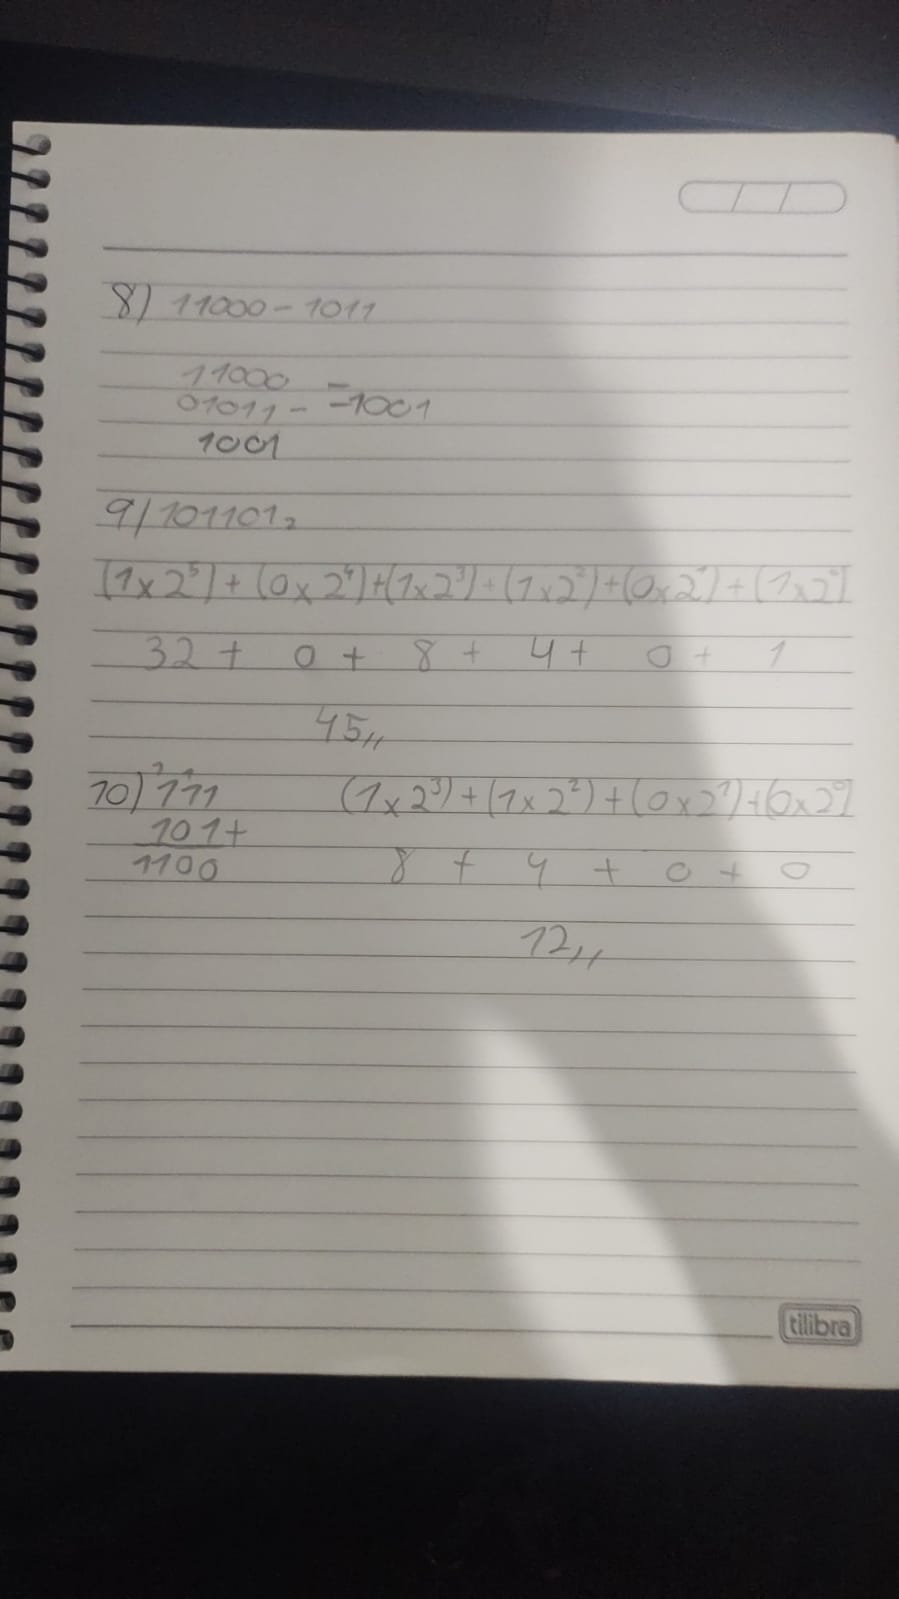 8) 11000 - 1011
11000
01011 - = -1001
1001
9) 101101₂
(1x2⁵) + (0x2⁴) + (1x2³) + (1x2²) + (0x2¹) + (1x2⁰)
32 + 0 + 8 + 4 + 0 + 1
45,,
10) 111 (1x2³) + (1x2²) + (0x2¹) + (0x2⁰)
101+
1100 8 + 4 + 0 + 0
12,,
tilibra